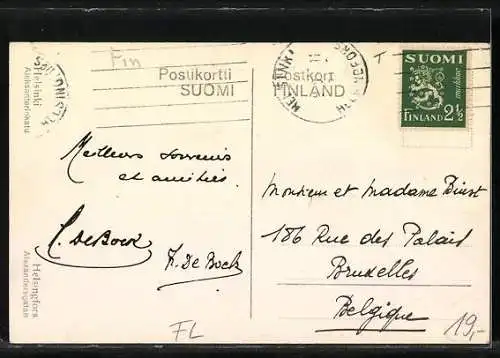 Fin
Postikortti
SUOMI
Postkort
FINLAND
HELSINKI
HELSINGFORS
T
SUOMI
markkaa
FINLAND 2½
Helsinki
Aleksanterinkatu
Helsingfors
Alexandersgatan
Meilleurs souvenirs
et amitiés.
C. DeBock
F. De Bock
FL
Monsieur et Madame
186 Rue des Palais
Bruxelles
Belgique
19,-